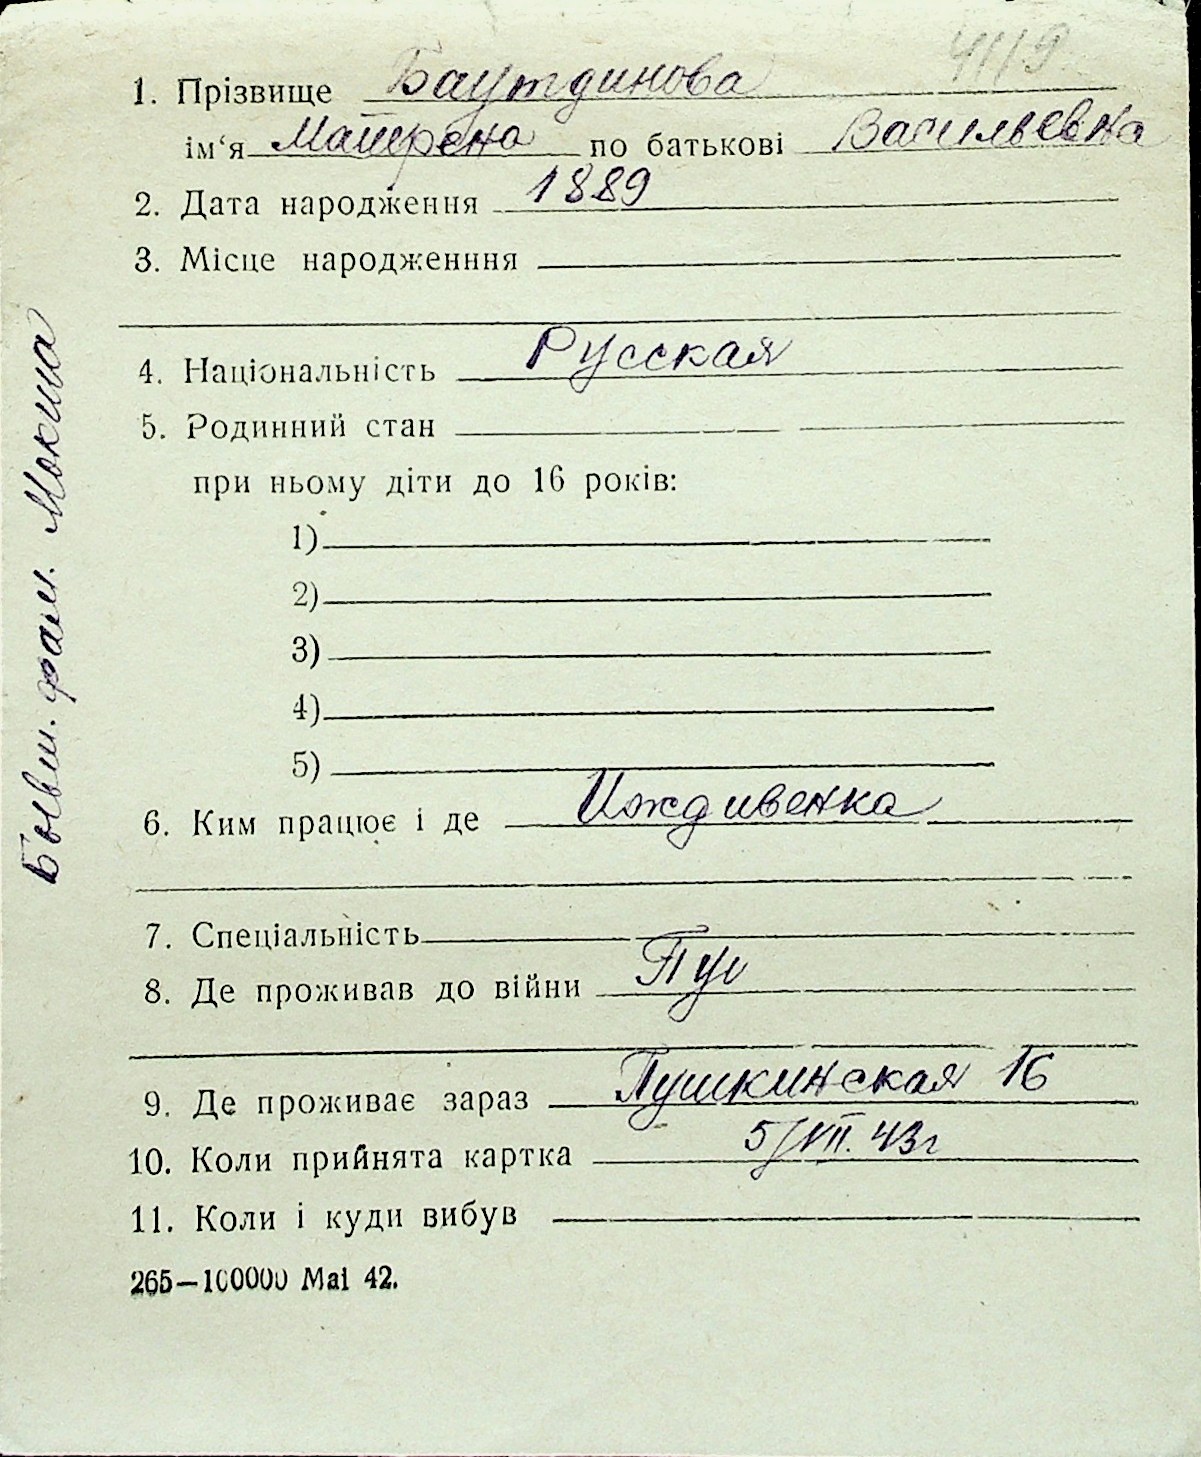 4119
1. Прізвище Баутдинова
ім‘я Матрена по батькові Васильевна
2. Дата народження 1889
3. Місце народженння
4. Національність Русская
5. Родинний стан
при ньому діти до 16 років:
1)
2)
3)
4)
5)
6. Ким працює і де Иждивенка
7. Спеціальність
8. Де проживав до війни Пуш
9. Де проживає зараз Пушкинская 16
10. Коли прийнята картка 5/VII. 43г
11. Коли і куди вибув
265—100000 Mai 42.
Бывш. фам. Мокша